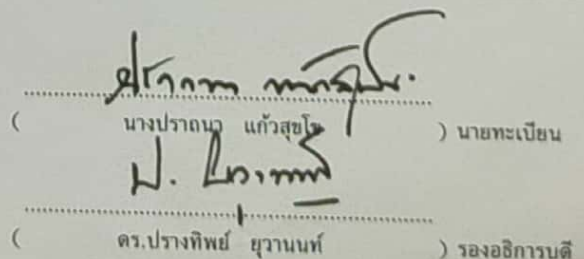 ( นางปราถนา แก้วสุขโข ) นายทะเบียน
ป. ยุวานนท์
( ดร.ปรางทิพย์ ยุวานนท์ ) รองอธิการบดี